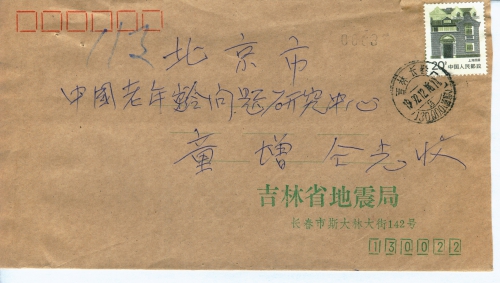 113
北京市
0083
20分 中国人民邮政
中国老年龄问题研究中心
童增 仝志收
吉林省地震局
长春市斯大林大街142号
130022